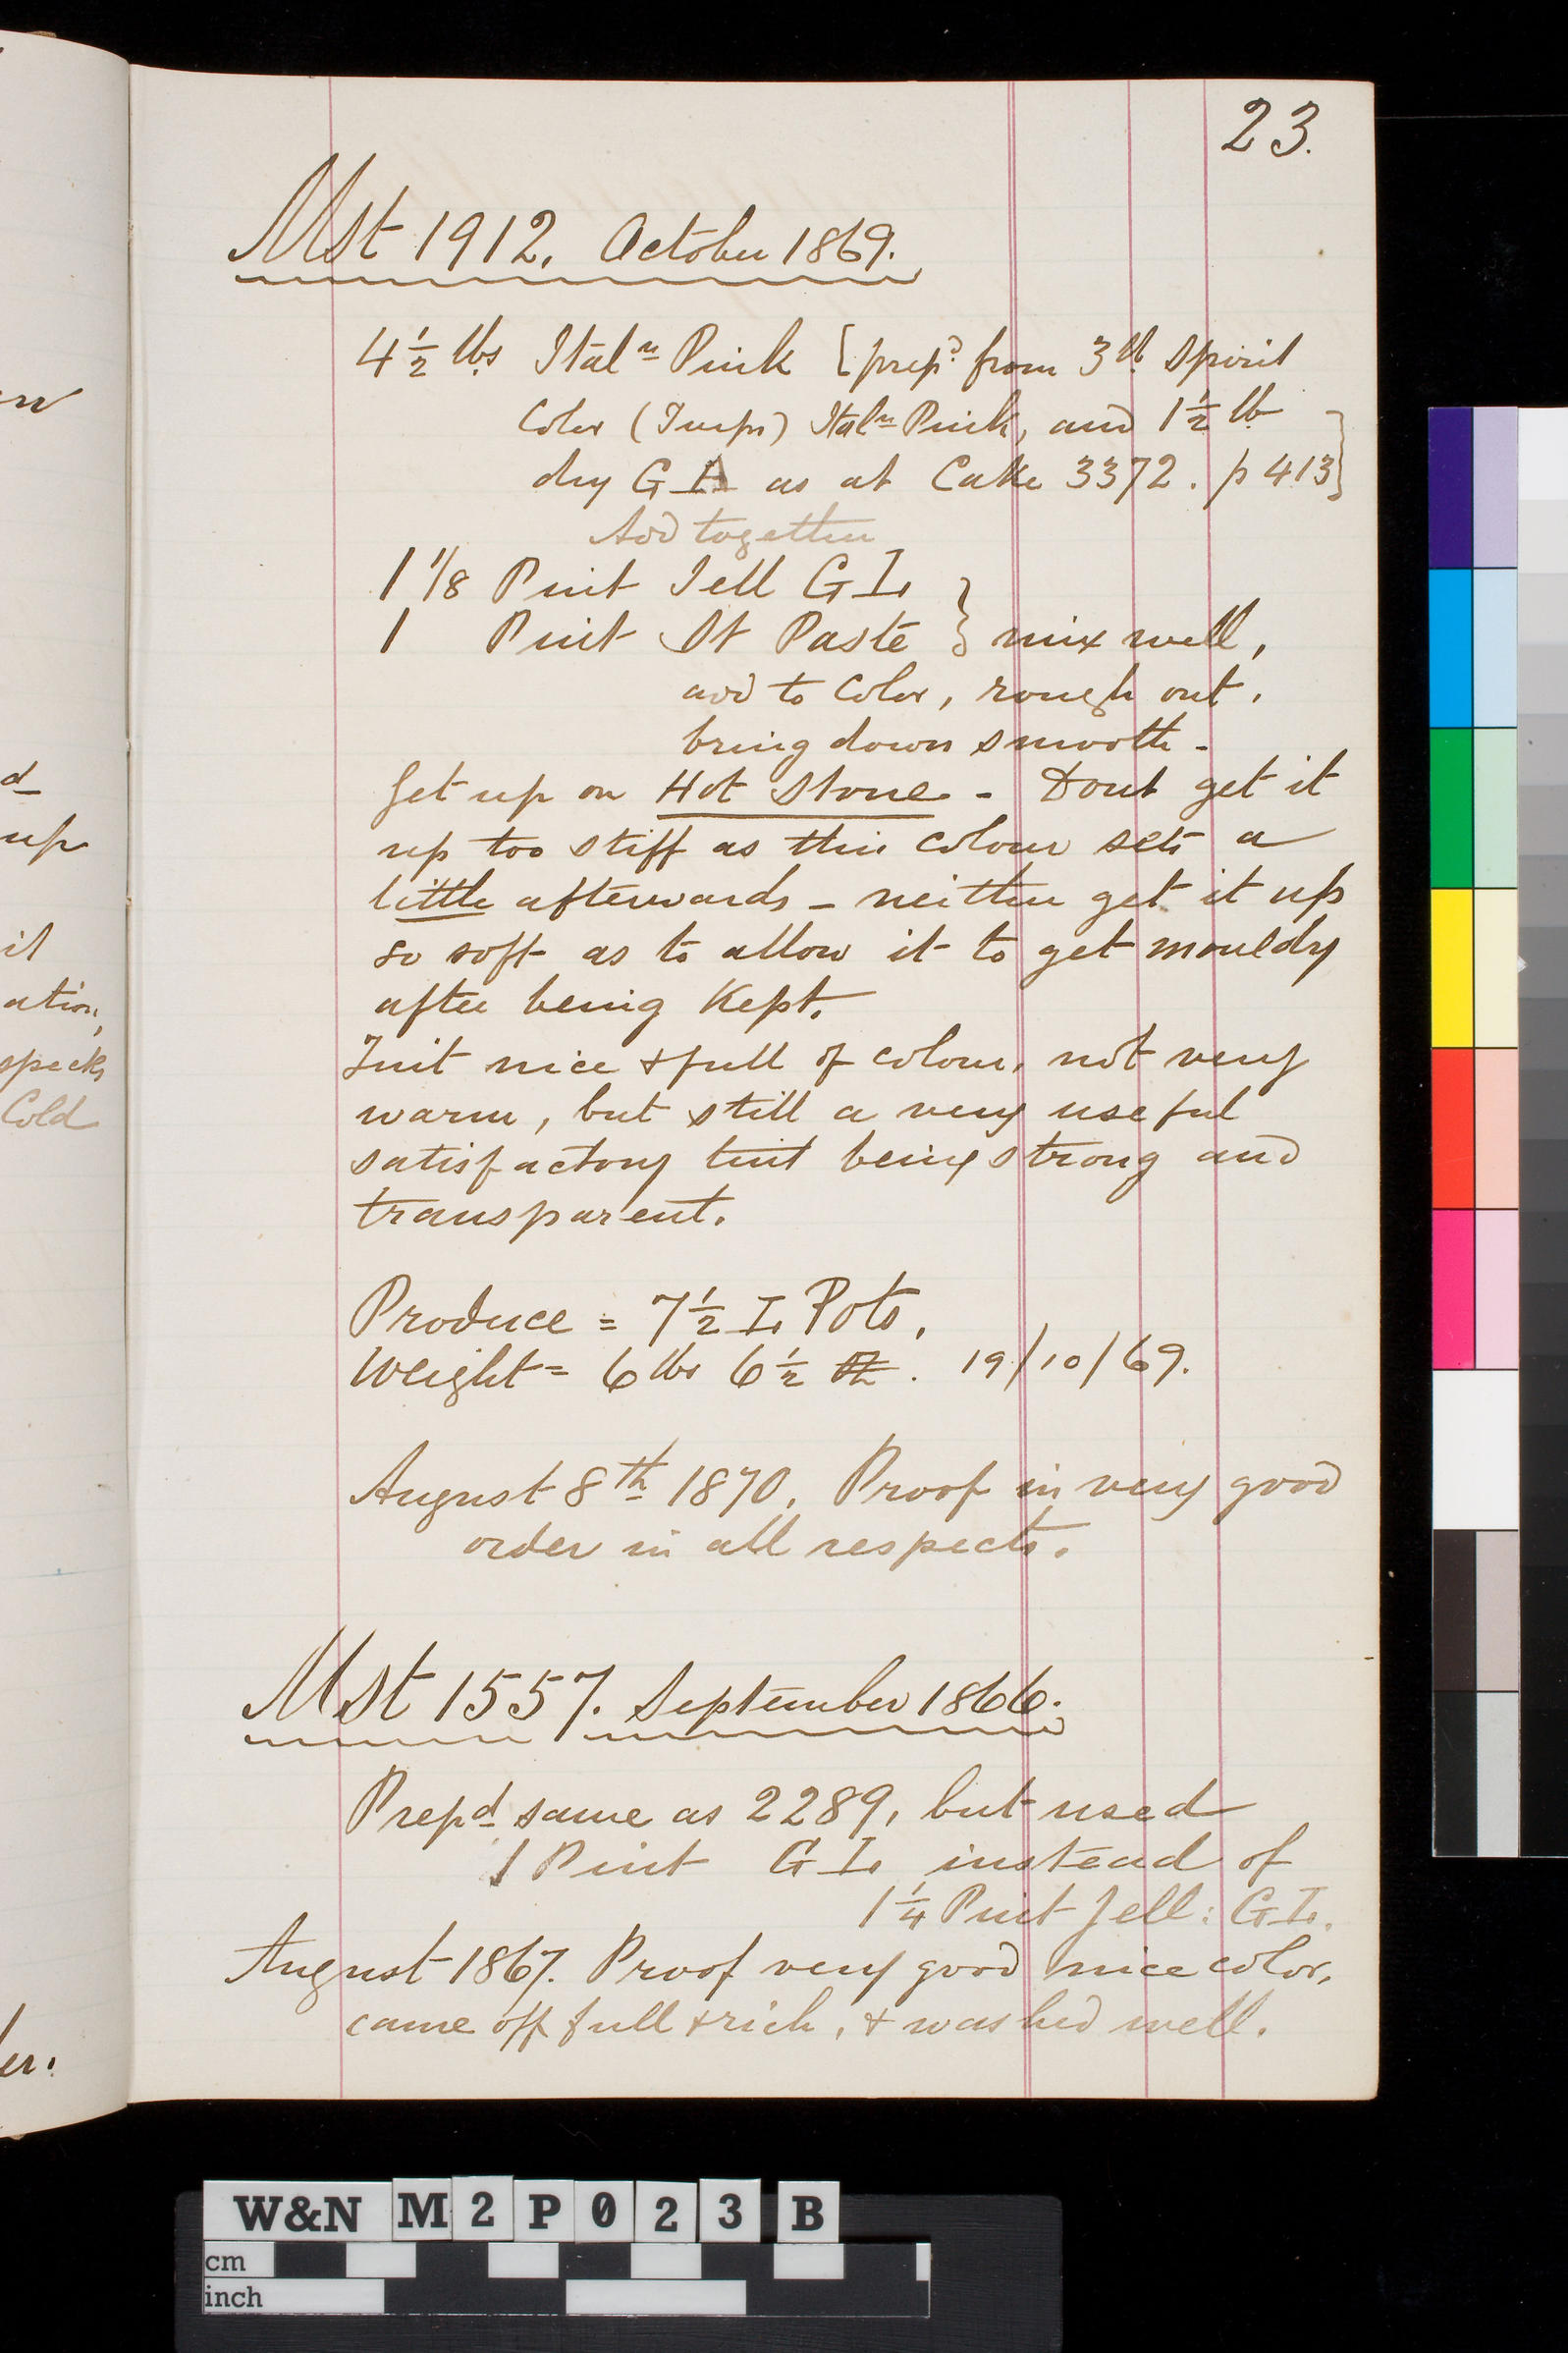 23.
Mst 1912. October 1869.
4 ½ lbs Italn Pink [prepd from 3 lb Spirit
Color (Turps) Italn Pink, and 1 ½ lb
dry G as at Cake 3372. p 413]
Add together
1 1/8 Pint Jell G I.
1 Pint St Paste } mix well,
add to Color, rough out,
bring down smooth -
Get up on Hot Stone - Dont get it
up too stiff as this colour sets a
little afterwards - neither get it up
so soft as to allow it to get mouldy
after being Kept.
Tint nice & full of colour, not very
warm, but still a very useful
satisfactory tint being strong and
transparent.
Produce = 7 ½ I. Pots.
Weight = 6 lbs 6 ½ . 19/10/69.
August 8th 1870. Proof in very good
order in all respects.
Mst 1557. September 1866.
Prepd same as 2289, but used
1 Pint G I. instead of
1 ¼ Pint Jell: G I.
August 1867. Proof very good nice color,
came off full & rich, & washed well.
n
d
up
it
ation,
specks
Cold
er.
W&N M2P023 B
cm
inch